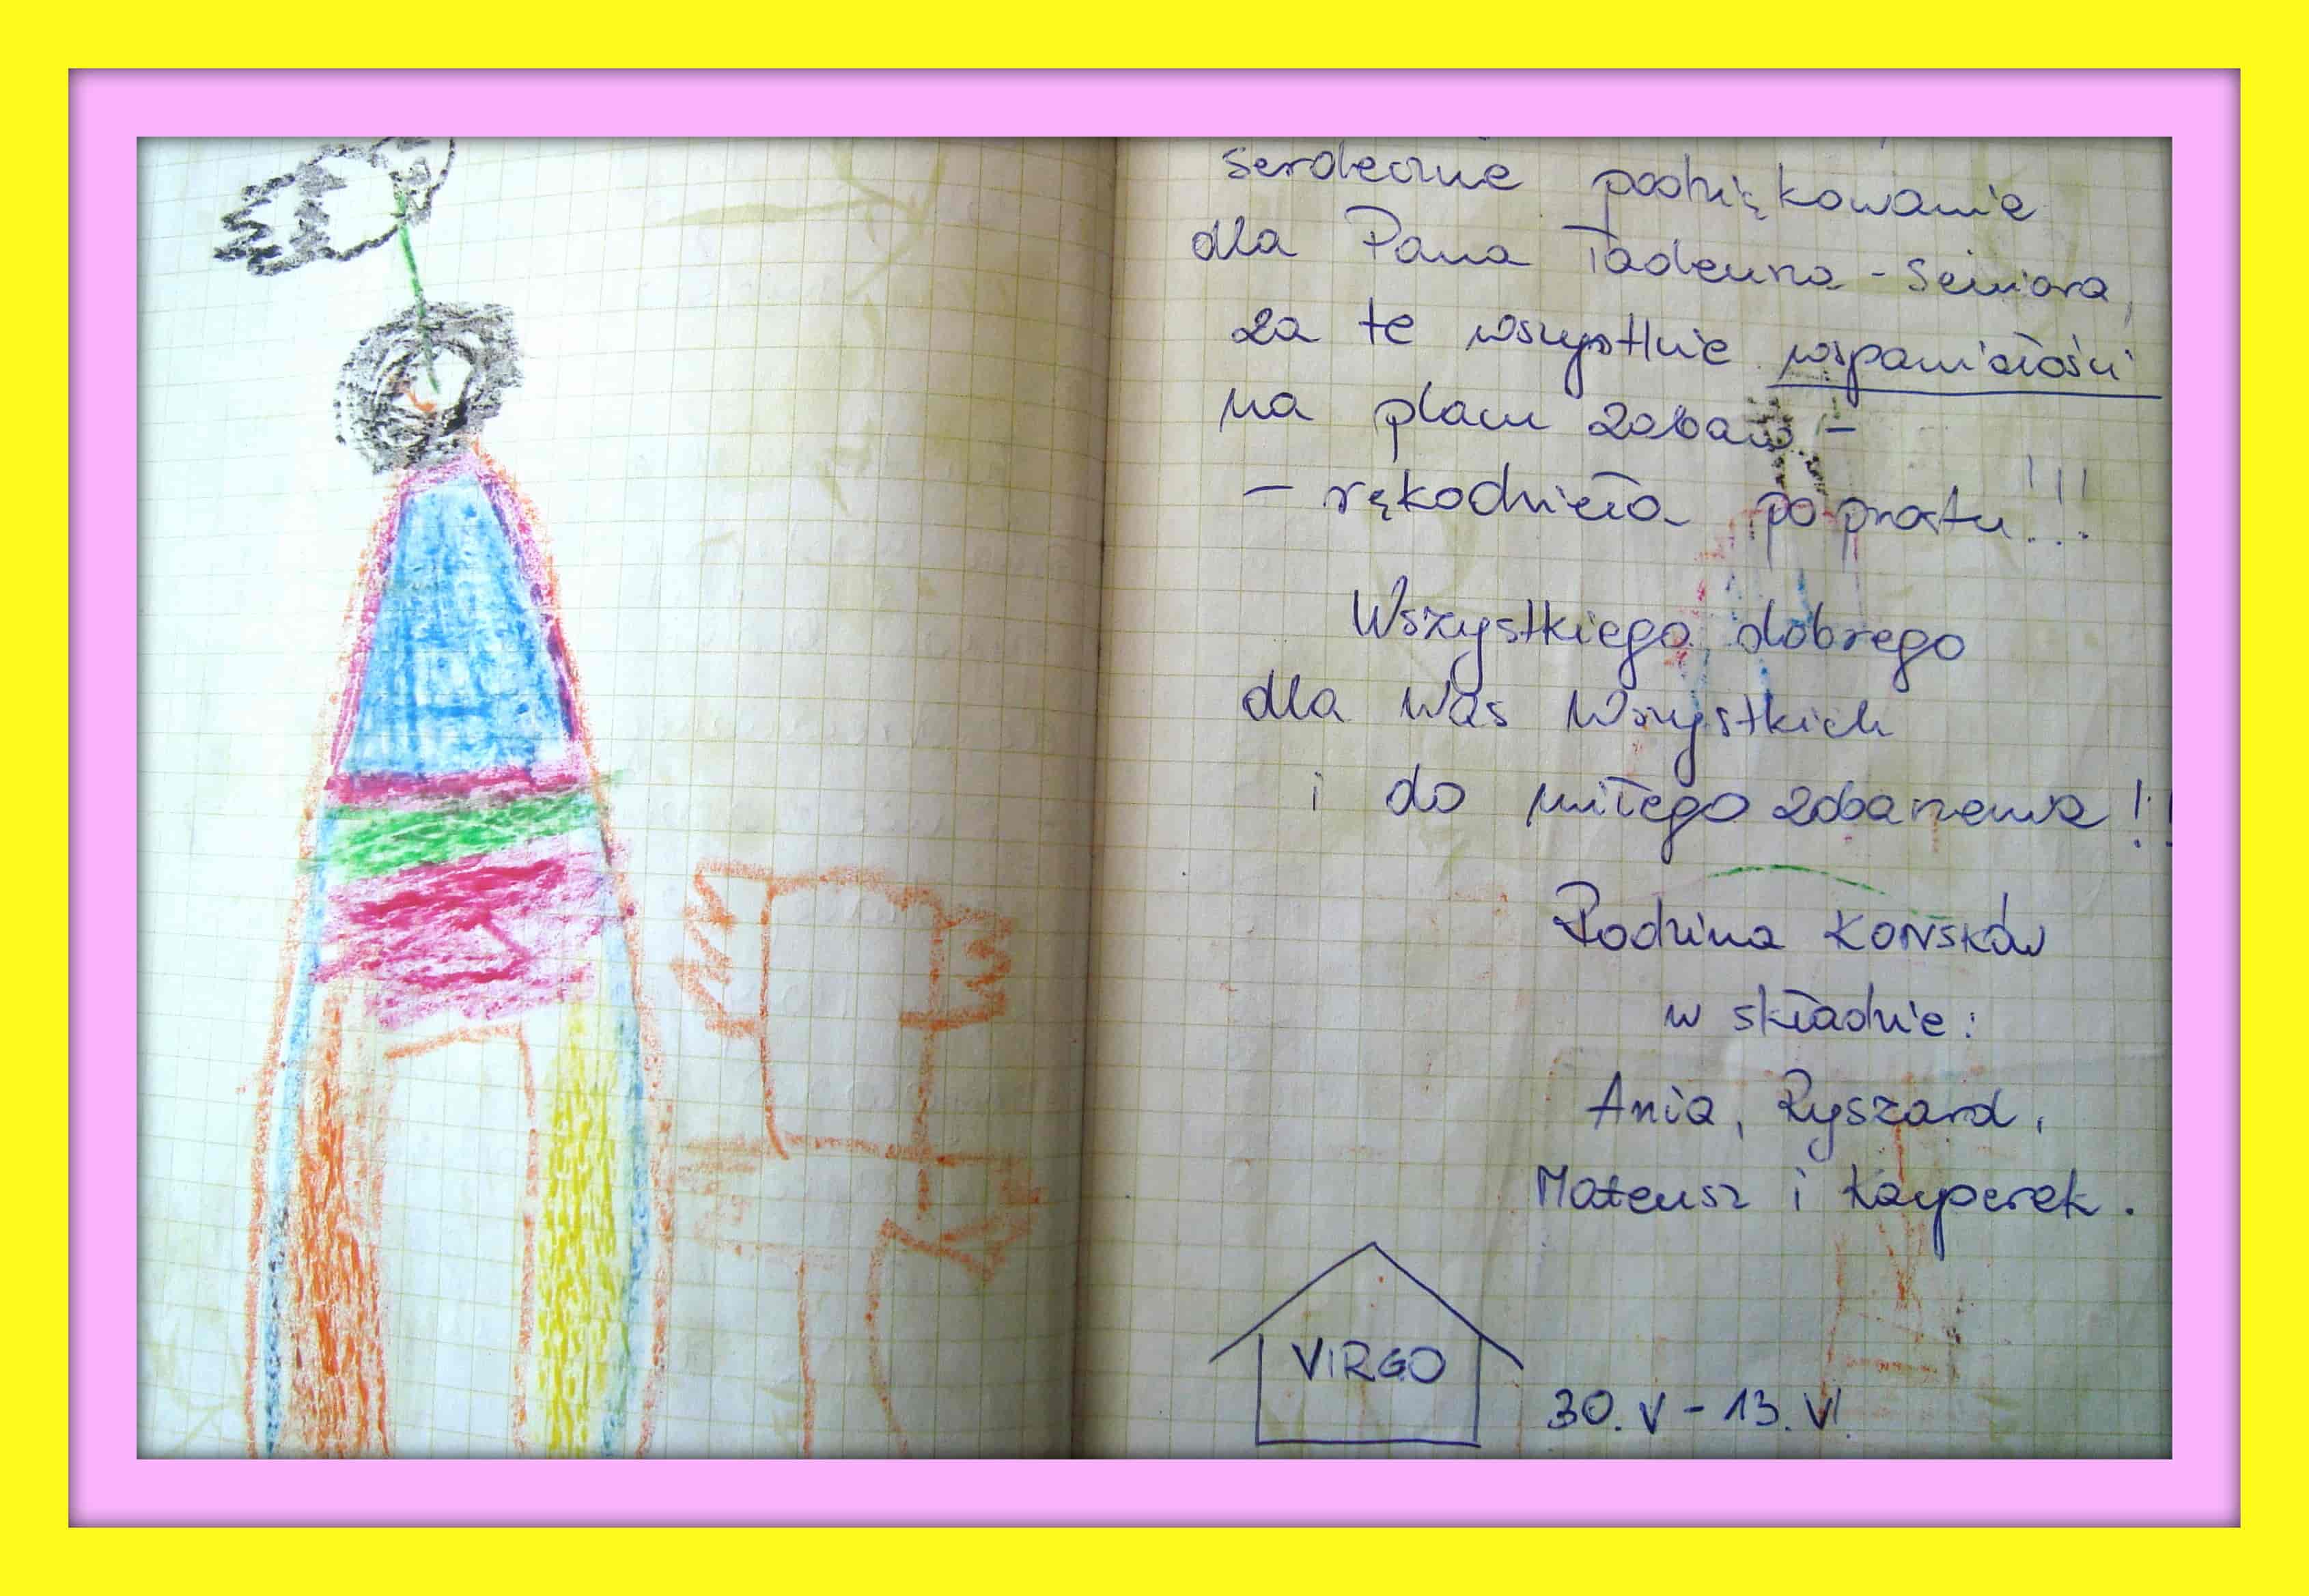 serdeczne podziękowanie
dla Pana Tadeusza - Seniora,
za te wszystkie wspaniałości
na placu zabaw -
- rękodzieła po prostu!!!
Wszystkiego dobrego
dla Was Wszystkich
i do miłego zobaczenia!!
Rodzina
w składzie:
Ania, Ryszard,
Mateusz i Kacperek.
VIRGO
30. V - 13. VI.